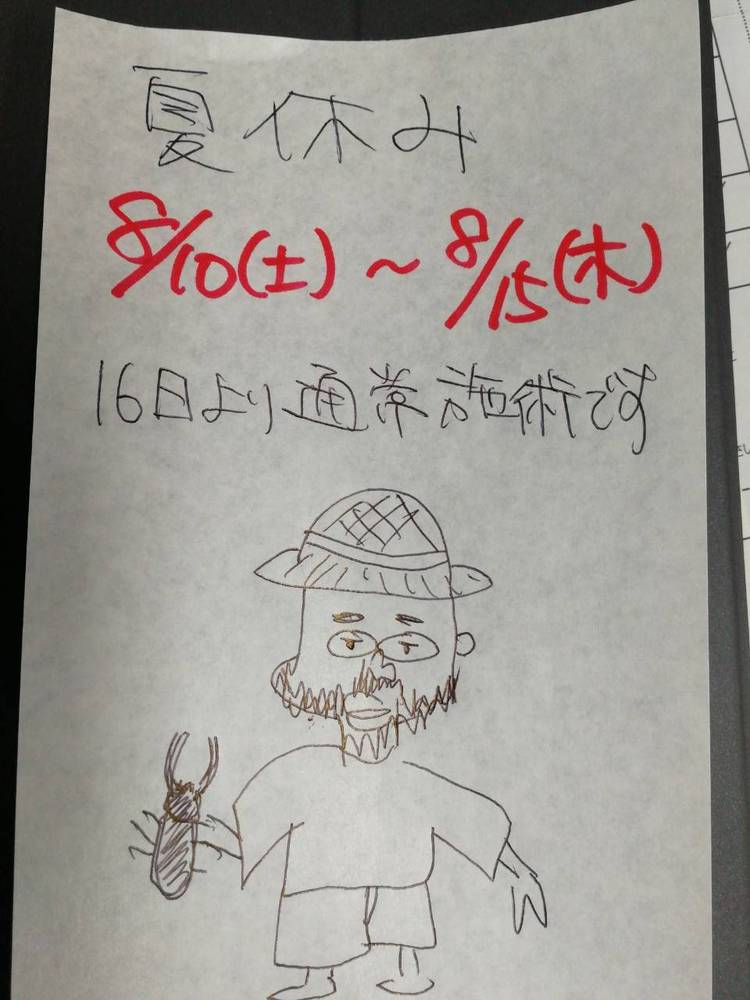 夏休み
8/10(土)～8/15(木)
16日より通常施術です